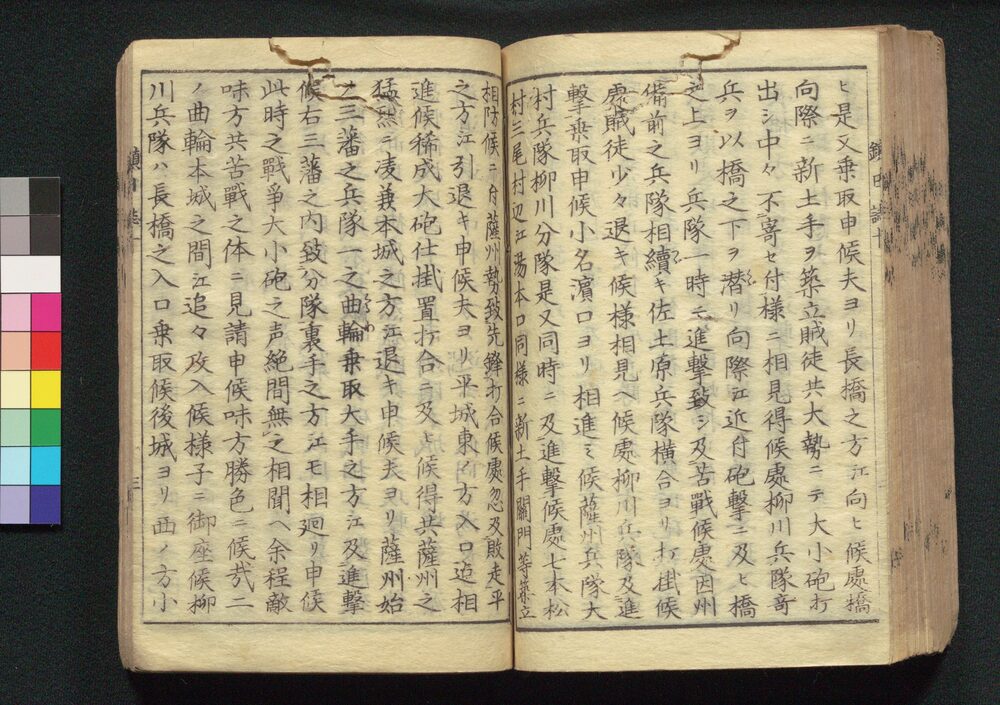 ヒ是又乗取申候夫ヨリ長橋之方江向ヒ候處橋
向際ニ新土手ヲ築立賊徒共大勢ニテ大小砲打
出シ中々不寄セ付様ニ相見得候處柳川兵隊竒
兵ヲ以橋之下ヲ潜リ向際江近付砲撃ニ及ヒ橋
之上ヨリ兵隊一時ニ進撃致シ及苦戰候處因州
備前之兵隊相續キ佐土原兵隊横合ヨリ打掛候
處賊徒少々退キ候様相見ヘ候處柳川兵隊及進
撃乗取申候小名濵口ヨリ相進ミ候薩州兵隊大
村兵隊柳川分隊是又同時ニ及進撃候處七本松
村三尾村辺江湯本口同様ニ新土手關門等築立
相防候ニ付薩州勢致先鋒打合候處忽及敗走平
之方江引退キ申候夫ヨリ平城東ノ方入口迠相
進候稀成大砲仕掛置打合ニ及ヒ候得共薩州之
猛烈ニ凌兼本城之方江退キ申候夫ヨリ薩州始
メ三藩之兵隊一之曲輪乗取大手之方江及進撃
候右三藩之内致分隊裏手之方江モ相廻リ申候
此時之戰爭大小砲之声絶間無之相聞ヘ余程敵
味方共苦戰之体ニ見請申候味方勝色ニ候哉二
ノ曲輪本城之間江追々攻入候様子ニ御座候柳
川兵隊ハ長橋之入口乗取候後城ヨリ西ノ方小
三